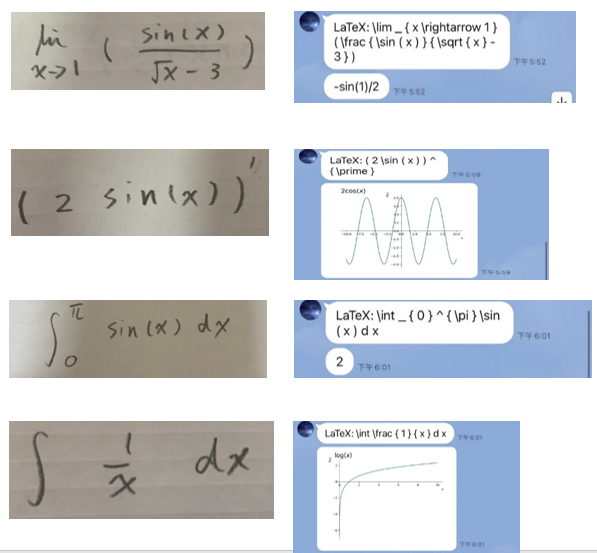 lim x→1 ( sin(x) / √x - 3 )
LaTeX: \lim _ { x \rightarrow 1 }
( \frac { \sin ( x ) } { \sqrt { x } -
3 } )
下午 5:52
-sin(1)/2
下午 5:52
( 2 sin(x) )'
LaTeX: ( 2 \sin ( x ) ) ^
{ \prime }
下午 5:59
2cos(x)
下午 5:59
∫₀^π sin(x) dx
LaTeX: \int _ { 0 } ^ { \pi } \sin
( x ) d x
下午 6:01
2
下午 6:01
∫ 1/x dx
LaTeX: \int \frac { 1 } { x } d x
下午 6:01
log(x)
下午 6:01